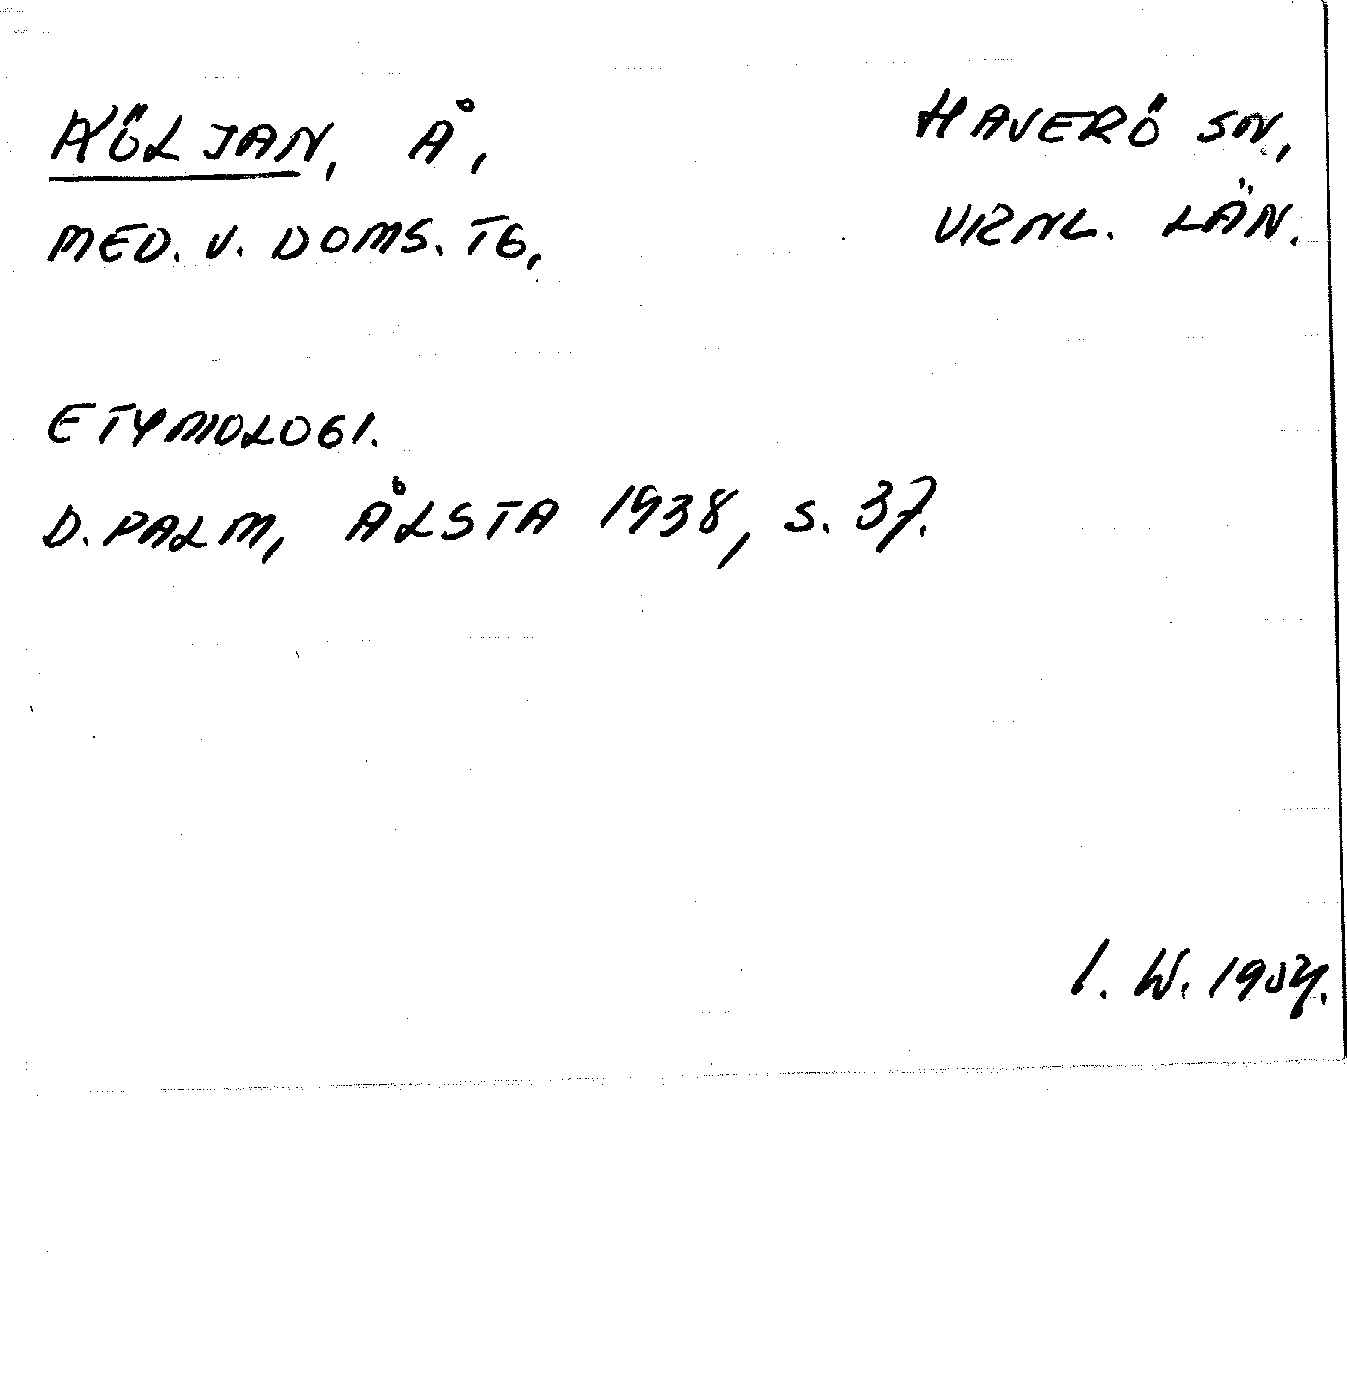 KÖLJAN, Å,
MED. V. DOMS. TG,
HAVERÖ SN,
VRNL. LÄN.
ETYMOLOGI.
D. PALM, ÅLSTA 1938, S. 37.
I. W.